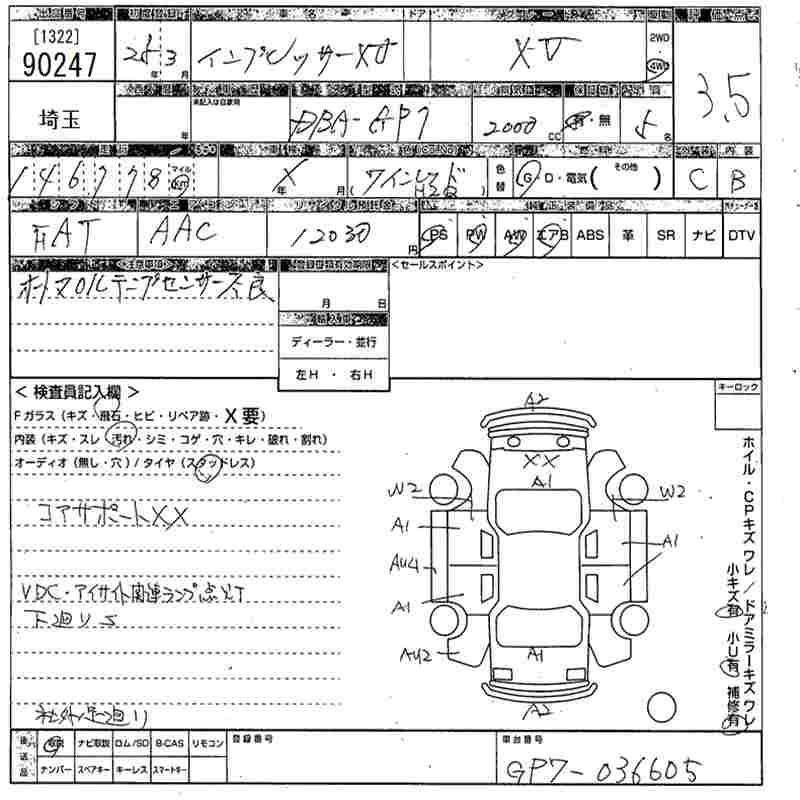 [1322]
90247
25 年 3 月
インプレッサーXV
XV
2WD
4WD
3.5
埼玉
年
未記入は自家用
DBA-GP7
2000 CC
有・無
5 名
146778
マイル
Km
X 年 月
(ワインレッド H2Q)
色替
G・D・電気( その他 )
C
B
FAT
AAC
12030 円
PS
PW
AW
エアB
ABS
革
SR
ナビ
DTV
<注意事項>
<セールスポイント>
月 日
ディーラー・並行
左H ・ 右H
<検査員記入欄>
Fガラス(キズ・飛石・ヒビ・リペア跡・X要)
内装(キズ・スレ・汚れ・シミ・コゲ・穴・キレ・破れ・割れ)
オーディオ(無し・穴)/タイヤ(スタッドレス)
コアサポートXX
VDC・アイサイト関連ランプ点灯
下廻りS
社外 足廻り
キーロック
A2
XX
A1
W2
W2
A1
A1
AU4
A1
AU2
A1
A2
ホイル・CPキズ ワレ/ドアミラーキズ ワレ
小キズ有 小U有 補修有
後送品
取説
ナビ取説
ロム/SD
B-CAS
リモコン
ナンバー
スペアキー
キーレス
スマートキー
登録番号
車台番号
GP7-036605